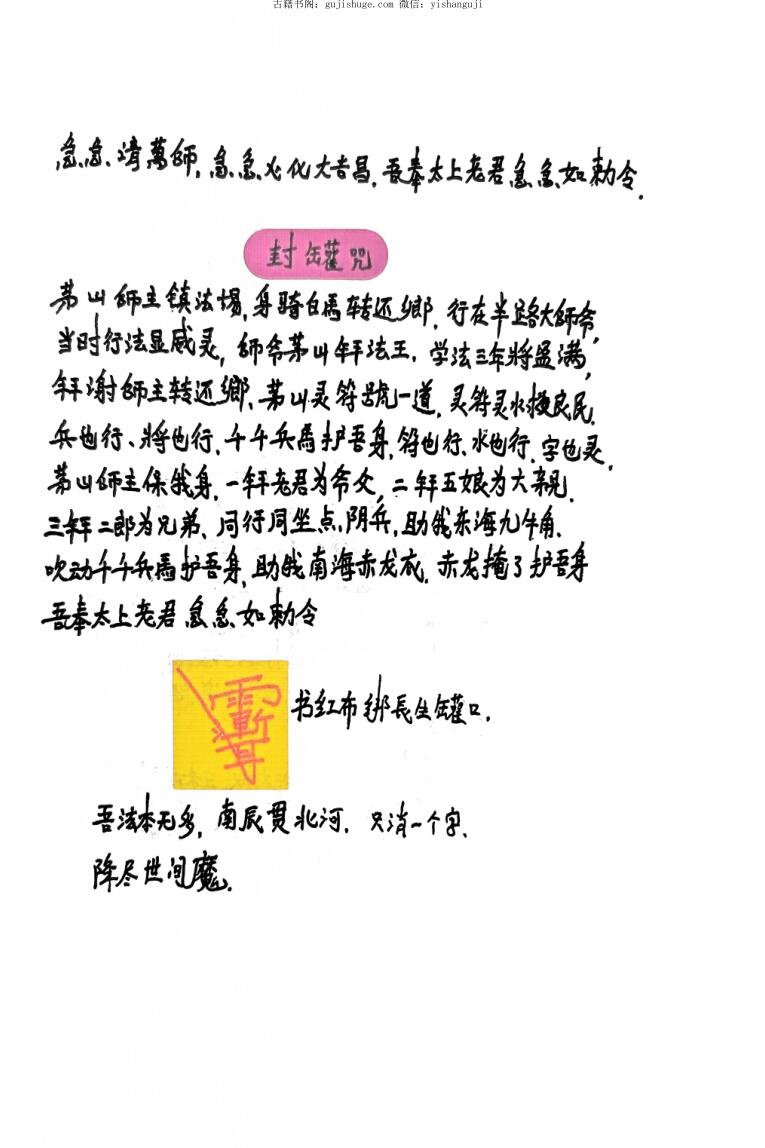 古籍书阁：gujishuge.com 微信：yishanguji
急急请萬師，急急火化大吉昌，吾奉太上老君急急如勅令．
封罐咒
茅山師主镇法場，身骑白馬转还鄉，行在半路大師爷，
当时行法显威灵，師爷茅山拜法王，学法三年將盈满，
拜谢師主转还鄉，茅山灵符號一道，灵符灵水救良民．
兵也行、將也行，千千兵馬护吾身，符也行、水也行．字也灵，
茅山師主保我身，一拜老君为爷父，二拜五娘为大親．
三拜二郎为兄弟、同行同坐点阴兵，助我东海九牛角．
吹动千千兵馬护吾身，助我南海赤龙衣．赤龙掩了护吾身
吾奉太上老君急急如勅令
书红布绑長生罐口．
吾法本无多，南辰贯北河．只消一个字．
降尽世间魔．